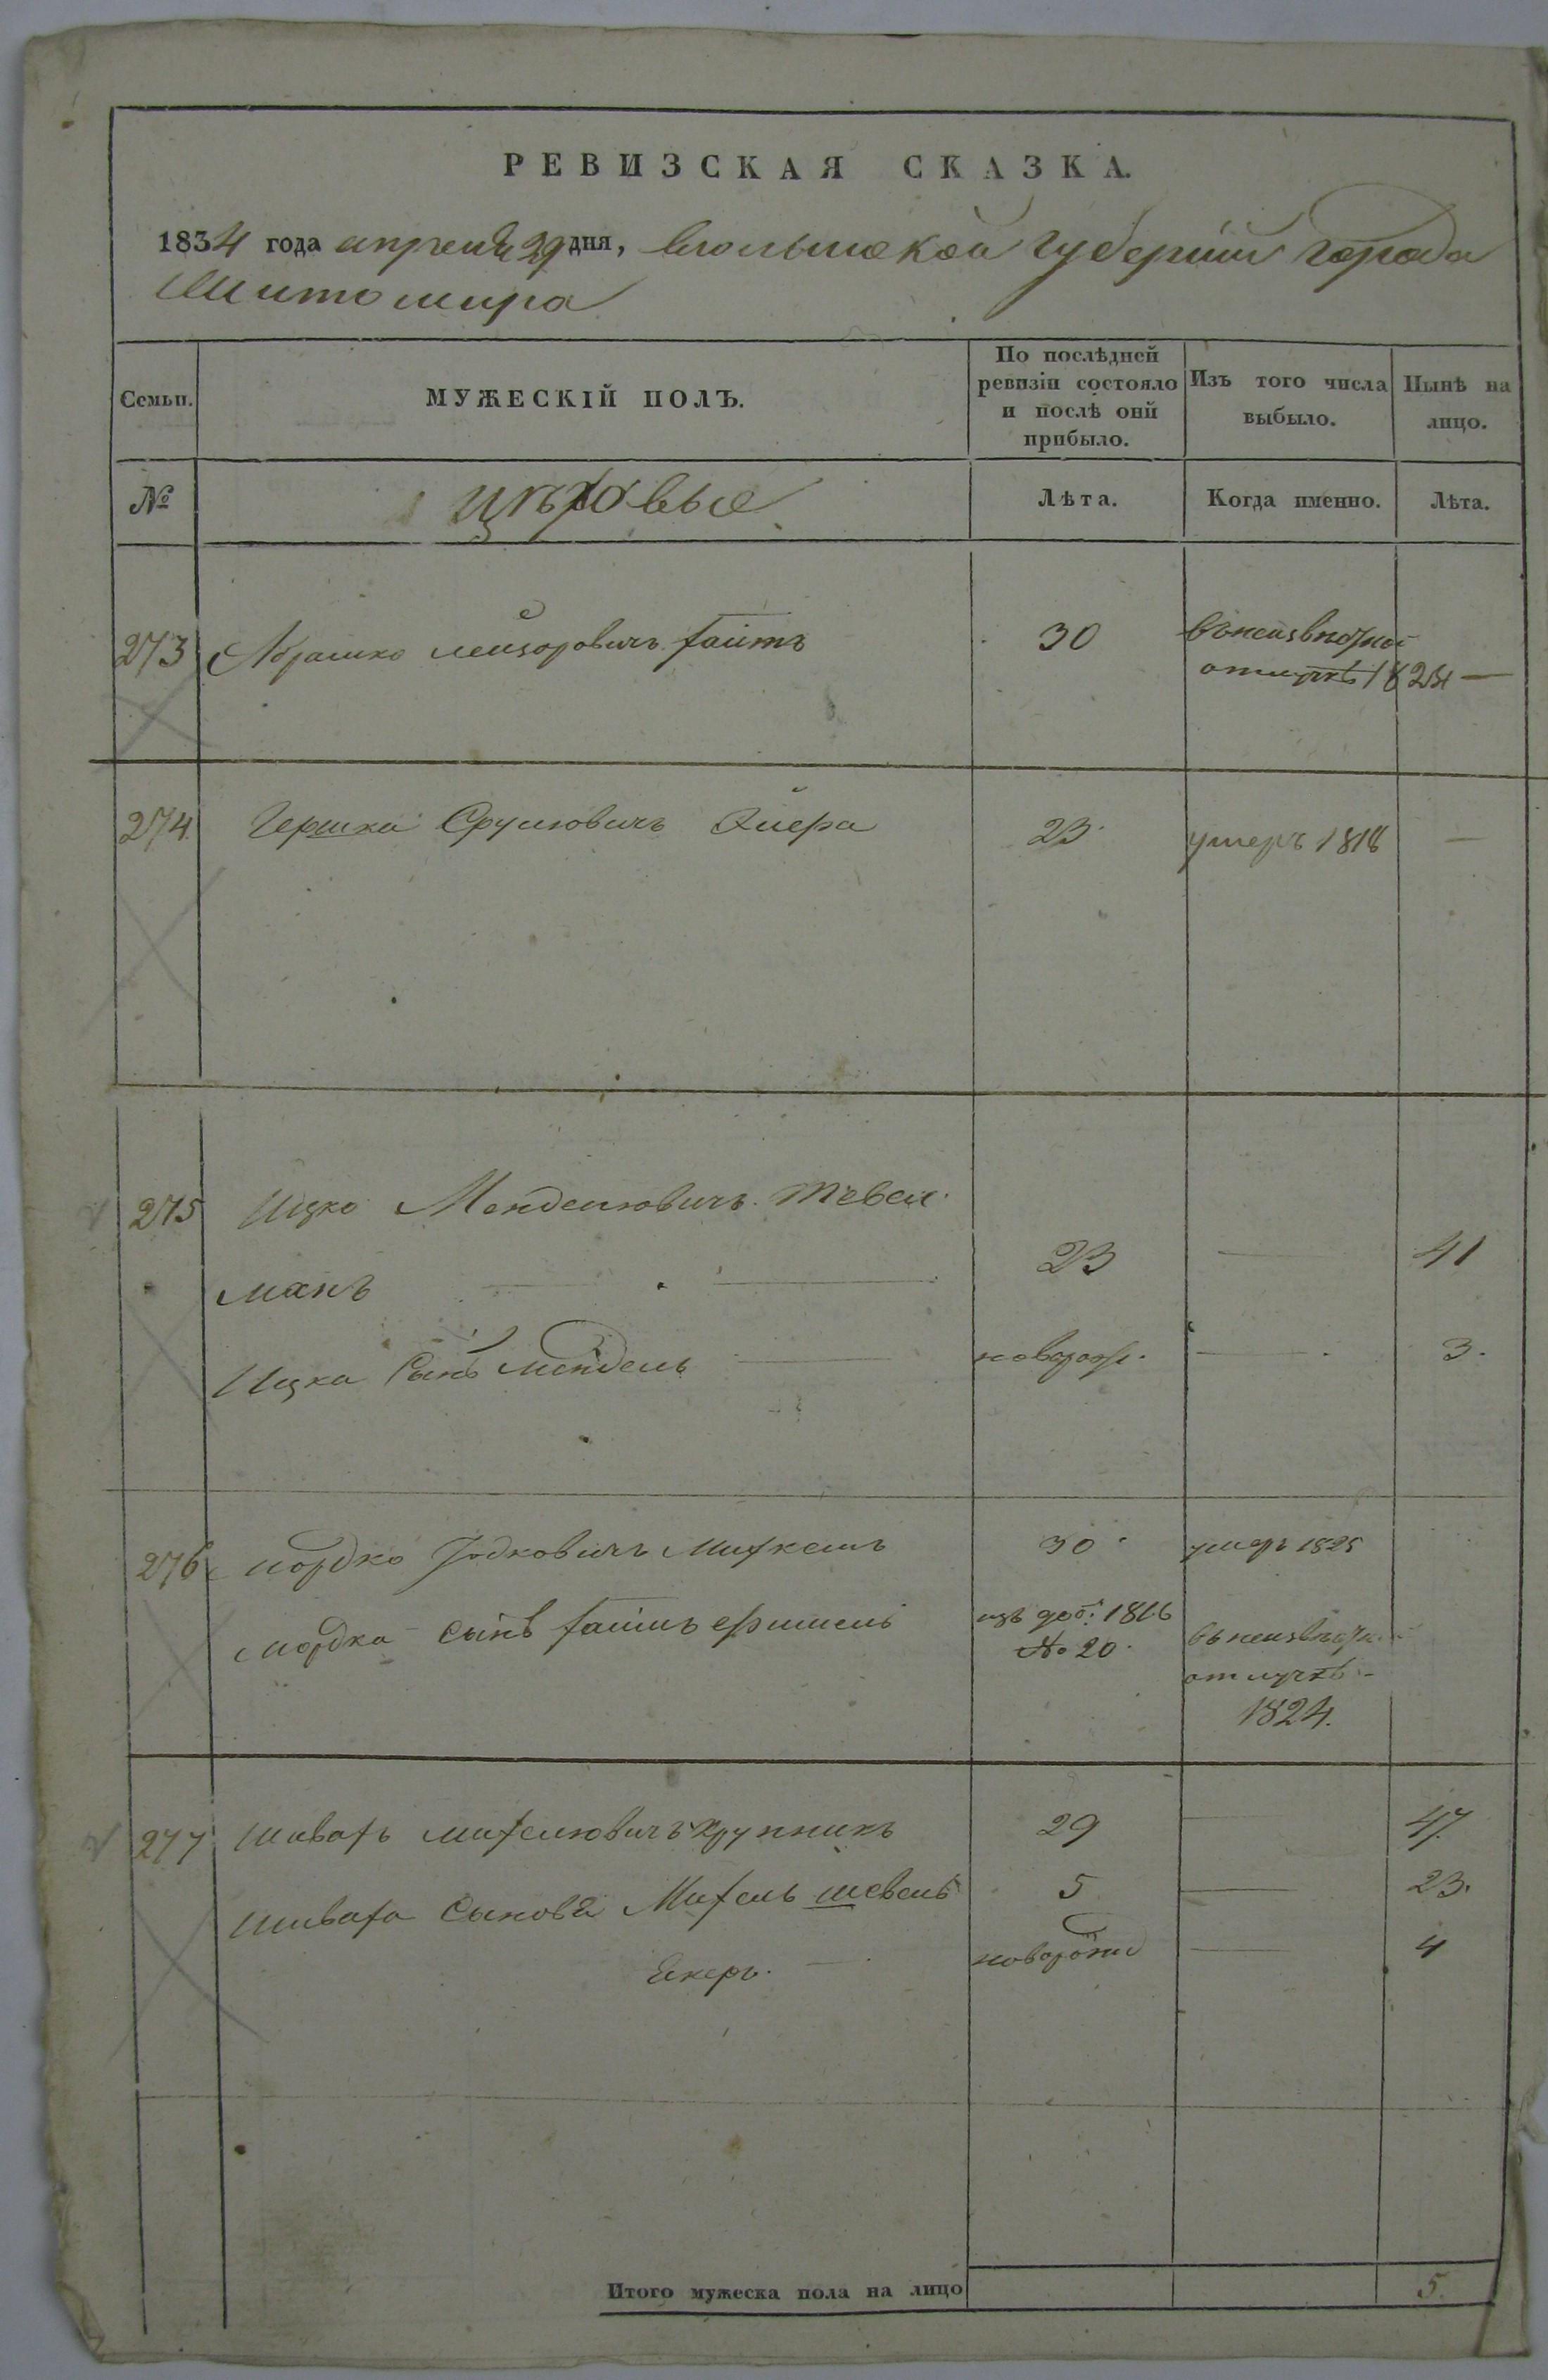 РЕВИЗСКАЯ СКАЗКА.
1834 года апреля 29 дня, волынской губернии города
Житомира
Семьи.
МУЖЕСКІЙ ПОЛЪ.
По послѣдней
ревизіи состояло
и послѣ оній
прибыло.
Изъ того числа
выбыло.
Нынѣ на
лицо.
№
цѣховые
Лѣта.
Когда именно.
Лѣта.
273 Абрамко лейзоровичъ 30 въ неизвѣстной
отлучкѣ 1824 —
274 Гершко Сруліовичъ 23 умеръ 1818 —
275 Ицко Менделіовичъ Тевел
манъ 23 — 41
Ицка Сынъ мендель новорож. — 3.
276 мордко 30 умеръ 1825
мордка сынъ изъ доб: 1816
№ 20
въ неизвѣстной
отлучкѣ
1824.
277 крупникъ 29 — 47
Сыновя 5 — 23.
новорожд — 4
Итого мужеска пола на лицо 5.